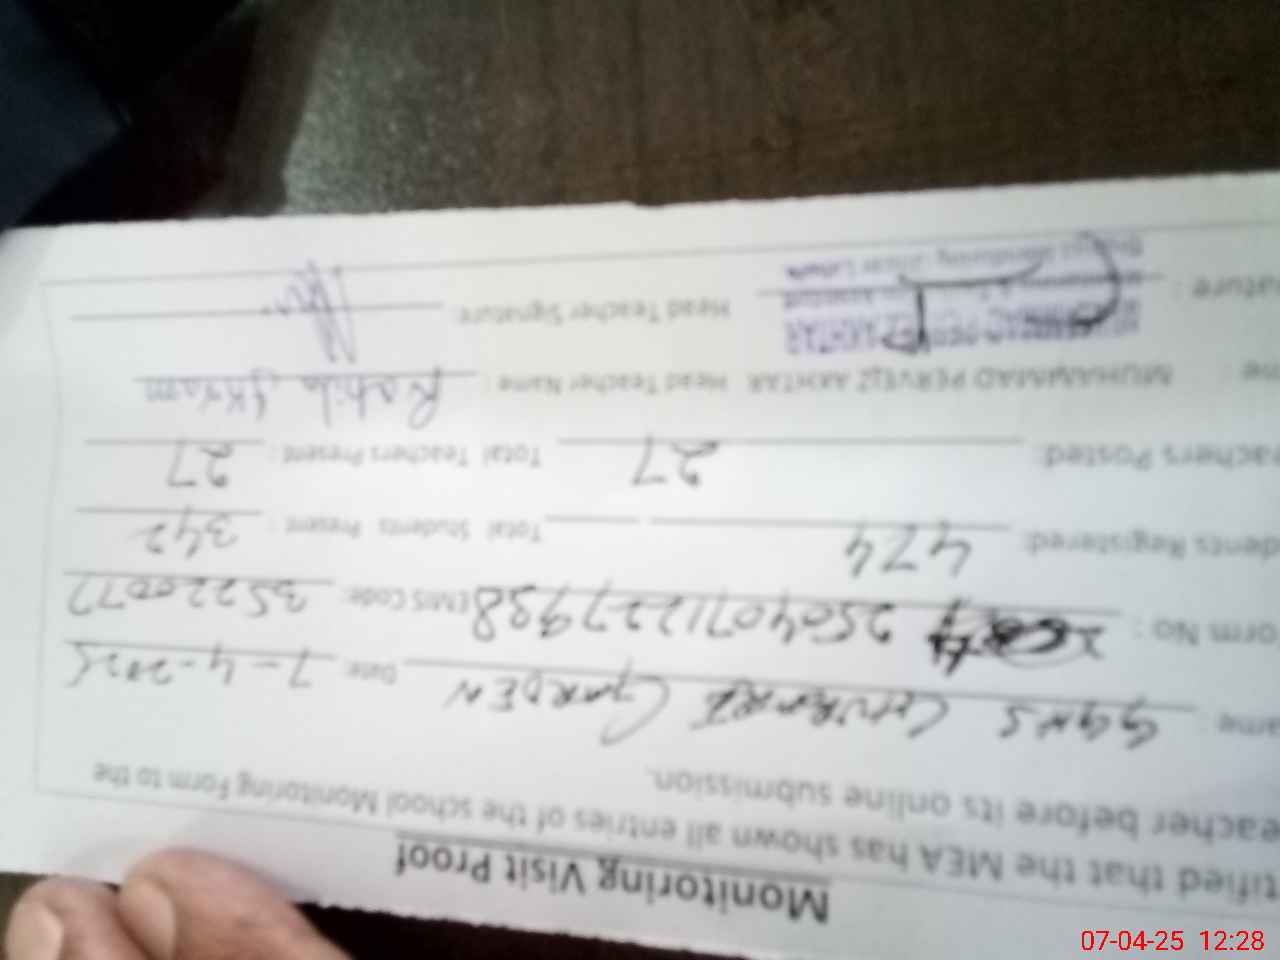 Monitoring Visit Proof
tified that the MEA has shown all entries of the school Monitoring Form to the
eacher before its online submission.
ame : GGHS GARDEN Date: 7-4-2025
orm No : 2504071227938 EMIS Code: 35220077
dents Registered: 474 Total Students Present : 342
achers Posted: 27 Total Teachers Present : 27
me : MUHAMMAD PERVEZ AKHTAR Head Teacher Name : Rahila Ikram
ature : Head Teacher Signature:
07-04-25 12:28